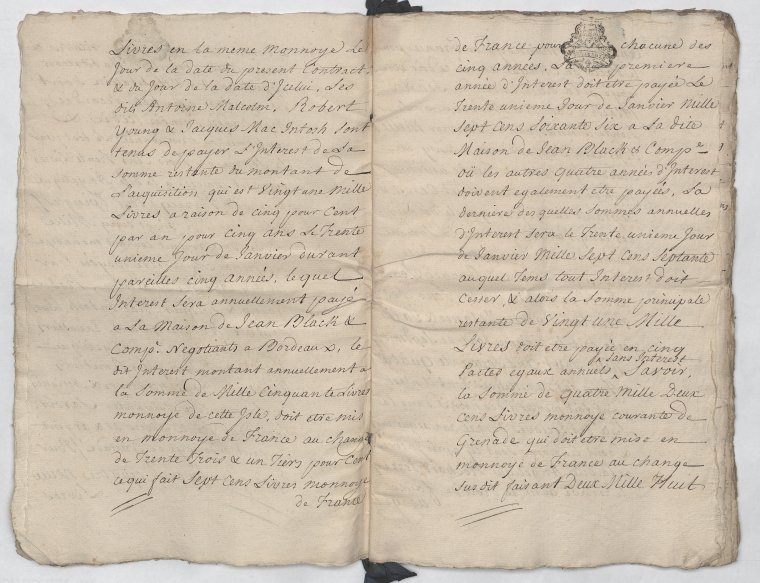 Livres en la meme monnoye Le
Jour de la date du present Contract,
& du Jour de la date d'Jcelui, Les
dits Antoine Malcolm, Robert
Young & Jacques Mac Intosh sont
tenus de payer L'Interest de La
somme restante du montant de
L'acquisition qui est Vingt une Mille
Livres a raison de cinq pour Cent
par an pour cinq ans Le Trente
unieme Jour de Janvier durant
pareilles cinq années, le quel
Interest sera annuellement payé
a La Maison de Jean Black &
Compe. Negotiants a Bordeaux, le
dit Interest montant annuellement a
la Somme de Mille Cinquante Livres
monnoye de cette Isle, doit etre mis
en monnoye de France au change
de Trente Trois & un Tiers pour Cent
ce qui fait Sept Cens Livres monnoye
de France
de France pour chacune des
cinq années. La premiere
année d'Interest doit etre payée Le
Trente unieme Jour de Janvier Mille
Sept cens Soixante Six a La dite
Maison de Jean Black & Compe
où les autres Quatre années d'Interest
doivent egalement etre payées, La
derniere des quelles sommes annuelles
d'Interest sera Le Trente unieme Jour
de Janvier Mille Sept Cens Septante
au quel Tems tout Interest doit
Cesser, & alois la Somme principale
restante de Vingt une Mille
Livres doit etre payée en cinq
Pactes egaux annuels sans Interest Savoir,
la Somme de Quatre Mille Deux
cens Livres monnoye courante de
Grenade qui doit etre mise en
monnoye de France au change
susdit faisant Deux Mille Huit